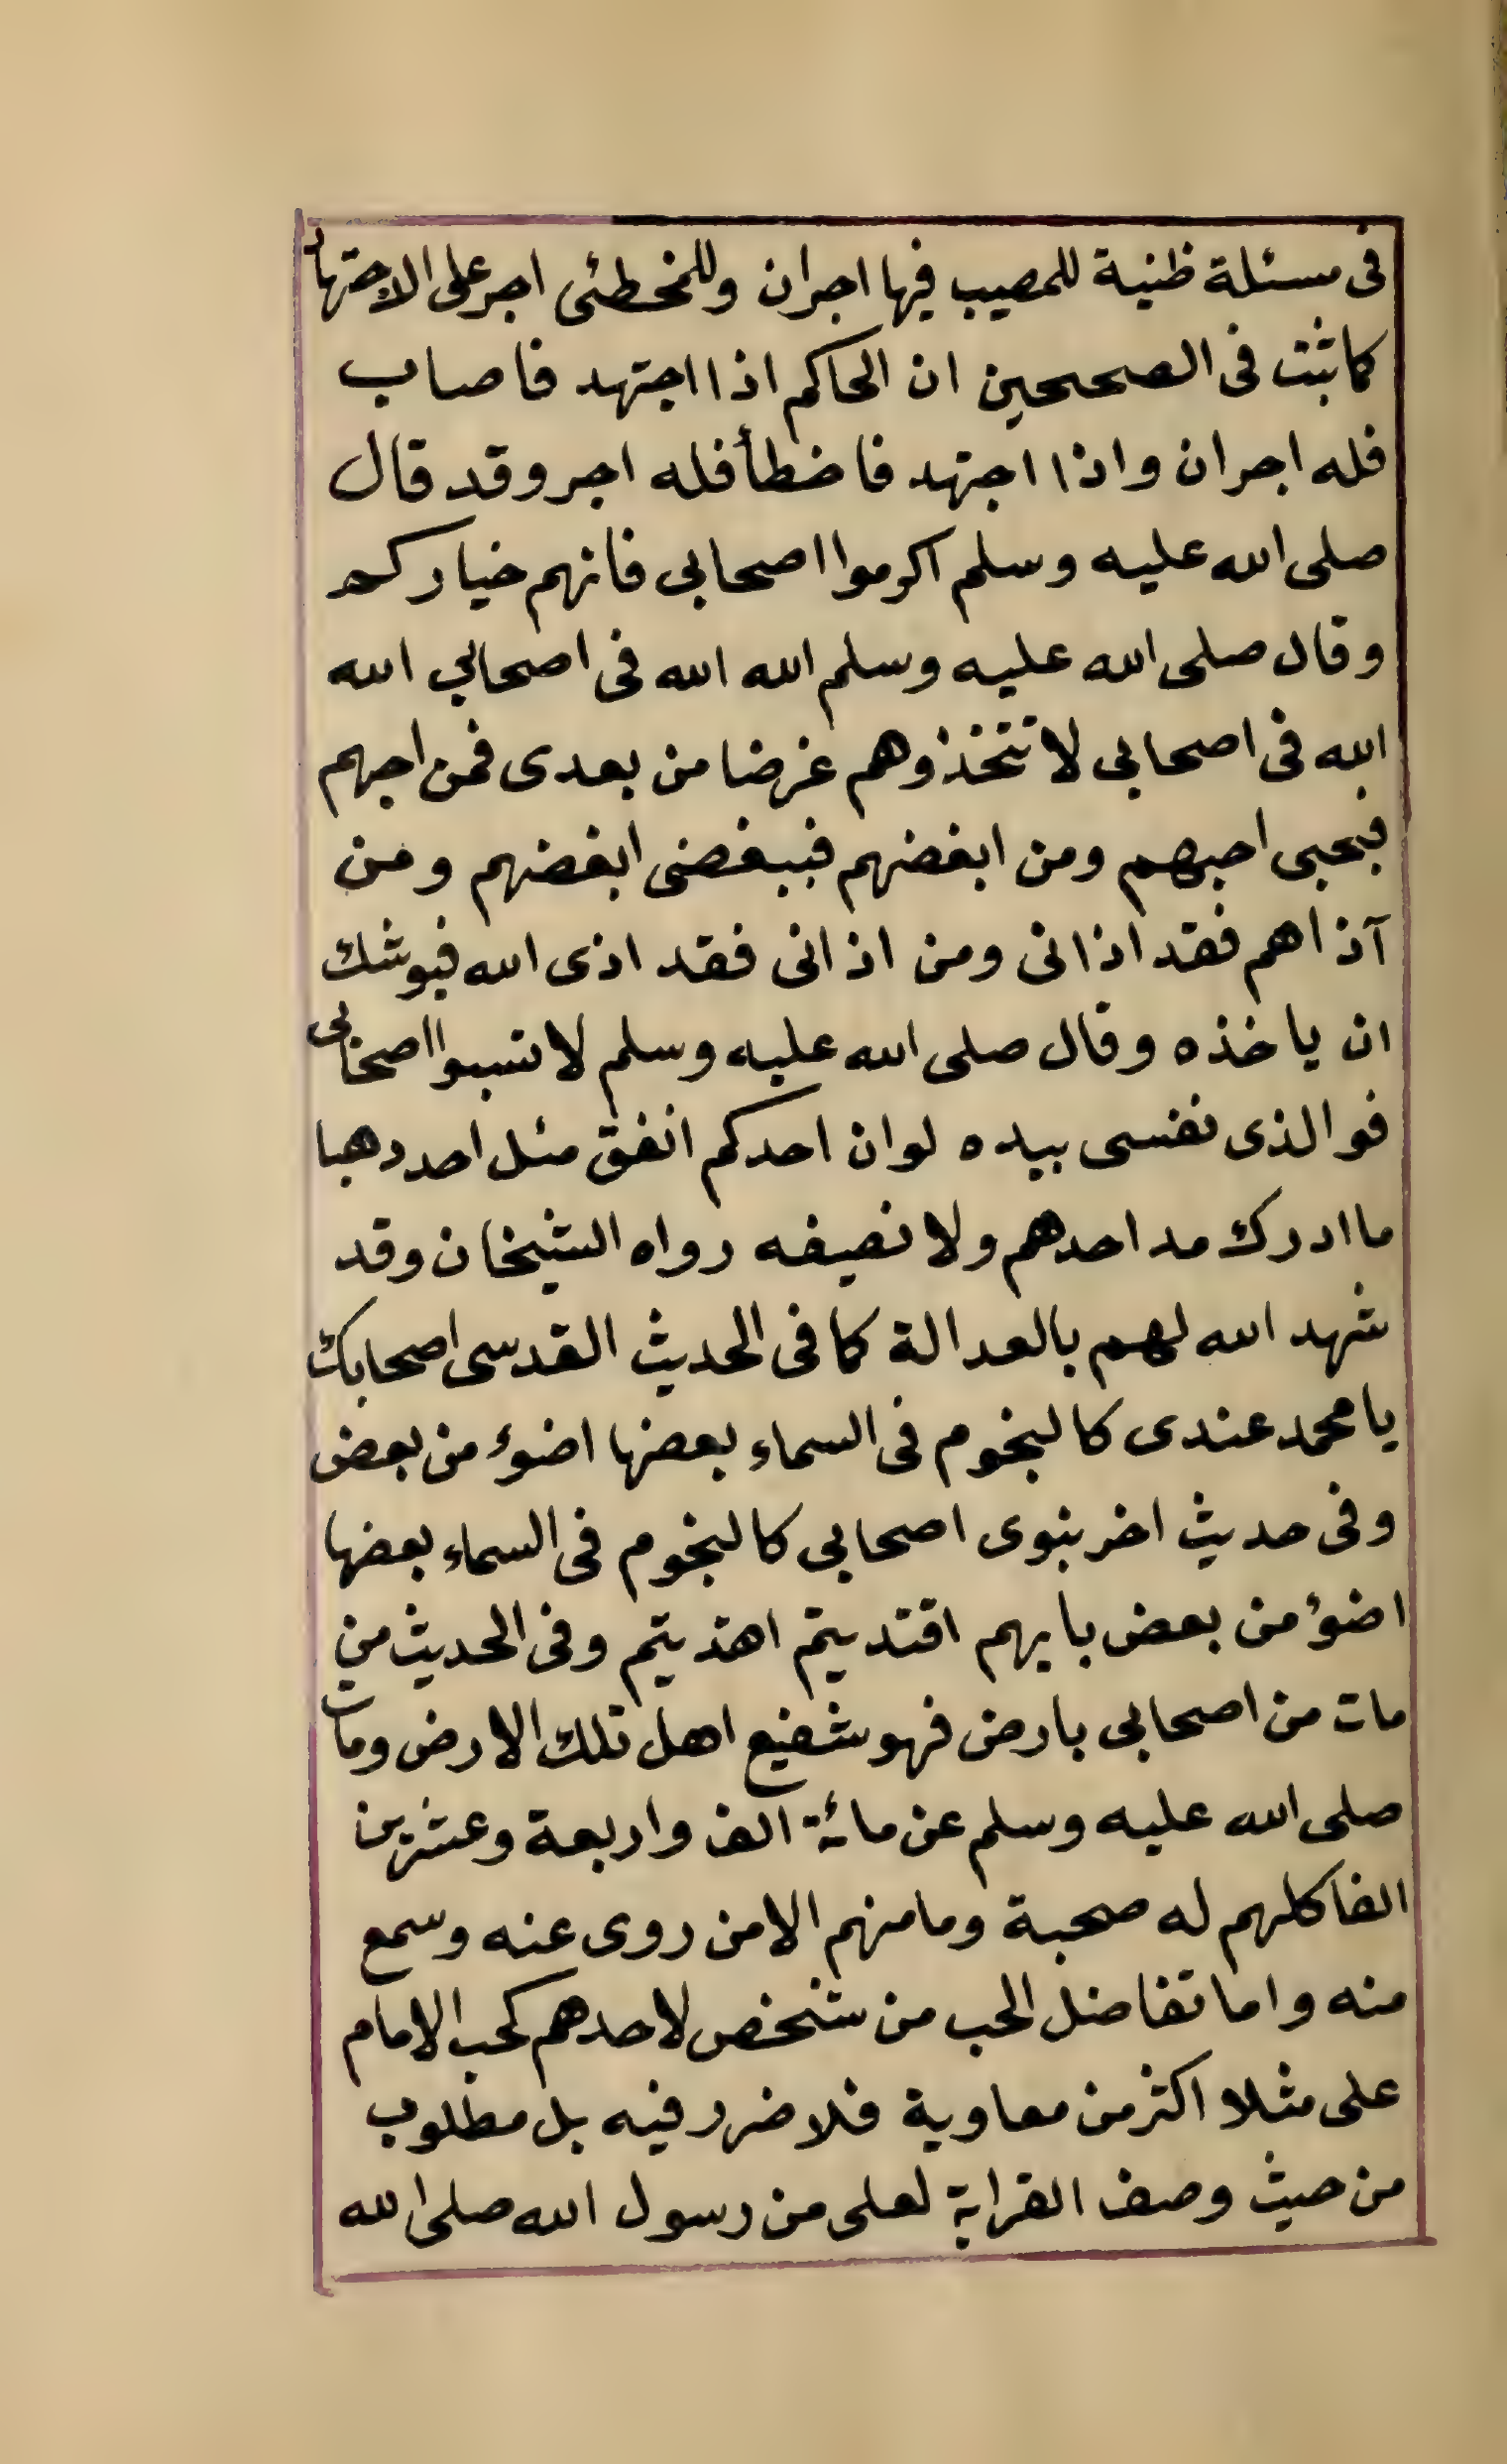 فى مسئلة ظنية للمصيب فيها اجران وللمخطئى اجر على الاجتهاد
كما ثبت فى الصحيحين ان الحاكم اذا اجتهد فاصاب
فله اجران واذا اجتهد فاخطأ فله اجر وقد قال
صلى الله عليه وسلم اكرموا اصحابى فانهم خياركم
وقال صلى الله عليه وسلم الله الله فى اصحابى الله
الله فى اصحابى لا تتخذوهم غرضا من بعدى فمن احبهم
فبحبى احبهم ومن ابغضهم فببغضى ابغضهم ومن
آذاهم فقد اذانى ومن اذانى فقد اذى الله فيوشك
ان ياخذه وقال صلى الله عليه وسلم لا تسبوا اصحابى
فوالذى نفسى بيده لوان احدكم انفق مثل احد ذهبا
ما ادرك مد احدهم ولا نصيفه رواه الشيخان وقد
شهد الله لهم بالعدالة كما فى الحديث القدسى اصحابك
يا محمد عندى كالنجوم فى السماء بعضها اضوء من بعض
وفى حديث اخر نبوى اصحابى كالنجوم فى السماء بعضها
اضوؤ من بعض بايهم اقتديتم اهتديتم وفى الحديث من
مات من اصحابى بارض فهو شفيع اهل تلك الارض ومات
صلى الله عليه وسلم عن مائة الف واربعة وعشرين
الفا كلهم له صحبة وما منهم الا من روى عنه وسمع
منه واما تفاضل الحب من شخص لاحدهم كحب الامام
على مثلا اكثر من معاوية فلا ضرر فيه بل مطلوب
من حيث وصف القراية لعلى من رسول الله صلى الله